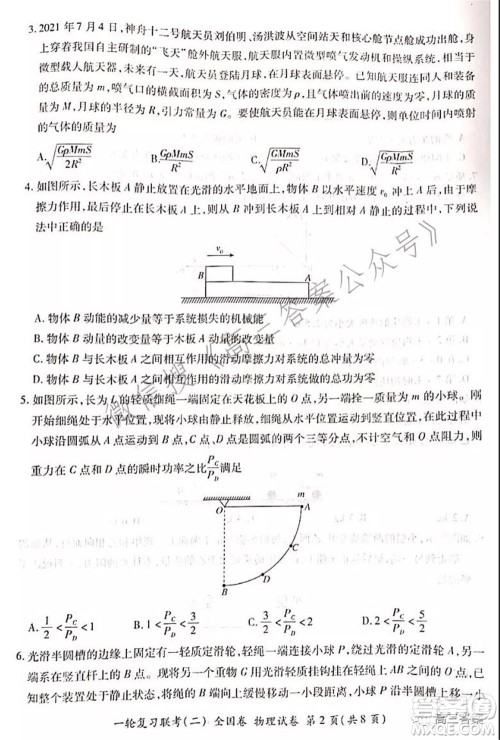 3. 2021 年 7 月 4 日,神舟十二号航天员刘伯明、汤洪波从天和核心舱节点舱成功出舱,身
上穿着我国自主研制的“飞天”舱外航天服,航天服内置微型喷气发动机和操纵系统,相当于
微型载人航天器,未来有一天,航天员登陆月球,在月球表面悬停。已知航天服连同人和装备
的总质量为 m,喷气口的横截面积为 S,气体的密度为ρ,航天员悬停前的速度为零,月球的
质量为 M,月球的半径为 R,引力常量为 G。要使航天员能在月球表面悬停,则单位时间内喷射
的气体的质量为
A. √(GρMmS/2R²) B. √(GρMmS/R²) C. √(GMmS/ρR²) D. √(GρMmS/R²)
4. 如图所示,长木板 A 静止放置在光滑的水平地面上,物体 B 以水平速度 v₀ 冲上 A 后,由于
摩擦力作用,最后停止在长木板 A 上,则从 B 冲到长木板 A 上到相对 A 静止的过程中,下列说
法中正确的是
v₀
B
A
A. 物体 B 动能的减少量等于系统损失的机械能
B. 物体 B 动量的改变量等于木板 A 动量的改变量
C. 物体 B 与长木板 A 之间相互作用的滑动摩擦力对系统的总冲量为零
D. 物体 B 与长木板 A 之间相互作用的滑动摩擦力对系统做的总功为零
5. 如图所示,长为 L 的轻质细绳一端固定在天花板上的 O 点,另一端拴一质量为 m 的小球。刚
开始细绳处于水平位置,现将小球由静止释放,细绳从水平位置运动到竖直位置,在此过程中
小球沿圆弧从 A 点运动到 B 点,C 点、D 点是圆弧的两个三等分点,不计空气和 O 点阻力,则
重力在 C 点和 D 点的瞬时功率之比 P_C/P_D 满足
O
m
A
C
D
B
A. 1/2 < P_C/P_D < 1 B. 1 < P_C/P_D < 3/2 C. 3/2 < P_C/P_D < 2 D. 2 < P_C/P_D < 5/2
6. 光滑半圆槽的边缘上固定有一轻质定滑轮,轻绳一端连接小球,绕过光滑的定滑轮,另一端系
在竖直杆上的 B 点,现将一光滑的轻质挂钩挂在轻绳上的 P 点,
一轮复习联考(二) 全国卷 物理试卷 第 2 页(共 8 页)
微信搜《高三答案公众号》
高三答案